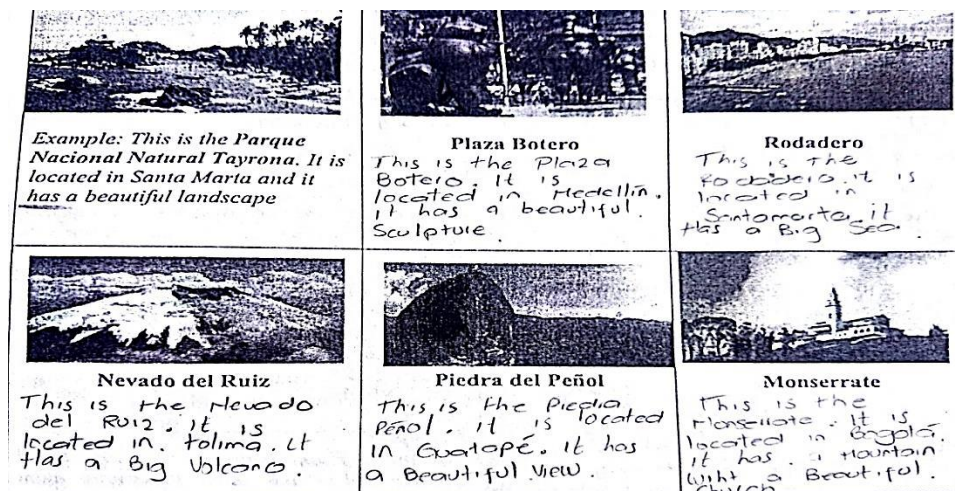 Example: This is the Parque
Nacional Natural Tayrona. It is
located in Santa Marta and it
has a beautiful landscape
Plaza Botero
This is the Plaza
Botero. It is
located in Medellín.
it has a beautiful.
Sculpture
Rodadero
This is the
Rodadero. it is
located in
Santamarta it
Has a Big Sea.
Nevado del Ruiz
This is the Nevado
del Ruiz. it is
located in tolima. it
Has a Big Volcano.
Piedra del Peñol
This is the Piedra
Peñol. it is located
in Guatapé. it has
a Beautiful View.
Monserrate
This is the
Monserrate. It is
located in Bogotá.
it has a Mountain
wiht a Beautiful.
Church